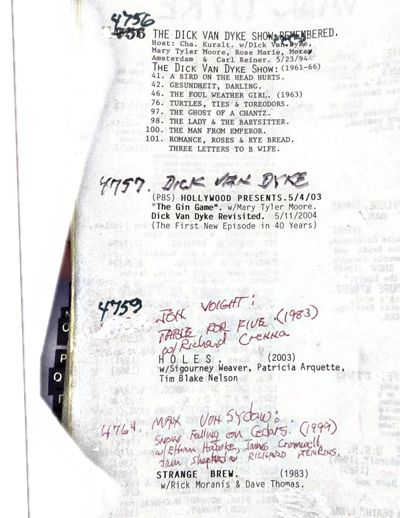 4756
THE DICK VAN DYKE SHOW REMEMBERED.
Host: Cha. Kuralt. w/Dick Van Dyke,
Mary Tyler Moore, Rose Marie, Morey
Amsterdam & Carl Reiner. 5/23/94
THE DICK VAN DYKE SHOW: (1961-66)
41. A BIRD ON THE HEAD HURTS.
42. GESUNDHEIT, DARLING.
46. THE FOUL WEATHER GIRL. (1963)
76. TURTLES, TIES & TOREODORS.
97. THE GHOST OF A CHANTZ.
98. THE LADY & THE BABYSITTER.
100. THE MAN FROM EMPEROR.
101. ROMANCE, ROSES & RYE BREAD.
THREE LETTERS TO B WIFE.
4757. DICK VAN DYKE
(PBS) HOLLYWOOD PRESENTS.5/4/03
"The Gin Game". w/Mary Tyler Moore.
Dick Van Dyke Revisited. 5/11/2004
(The First New Episode in 40 Years)
4759
JON VOIGHT:
TABLE FOR FIVE.(1983)
w/Richard Crenna
HOLES. (2003)
w/Sigourney Weaver, Patricia Arquette,
Tim Blake Nelson
4764. MAX VON SYDOW:
Snow Falling on Cedars. (1999)
w/Ethan Hawke, James Cromwell,
Sam Shepard & RICHARD JENKINS.
STRANGE BREW. (1983)
w/Rick Moranis & Dave Thomas.
N
O
P
Q